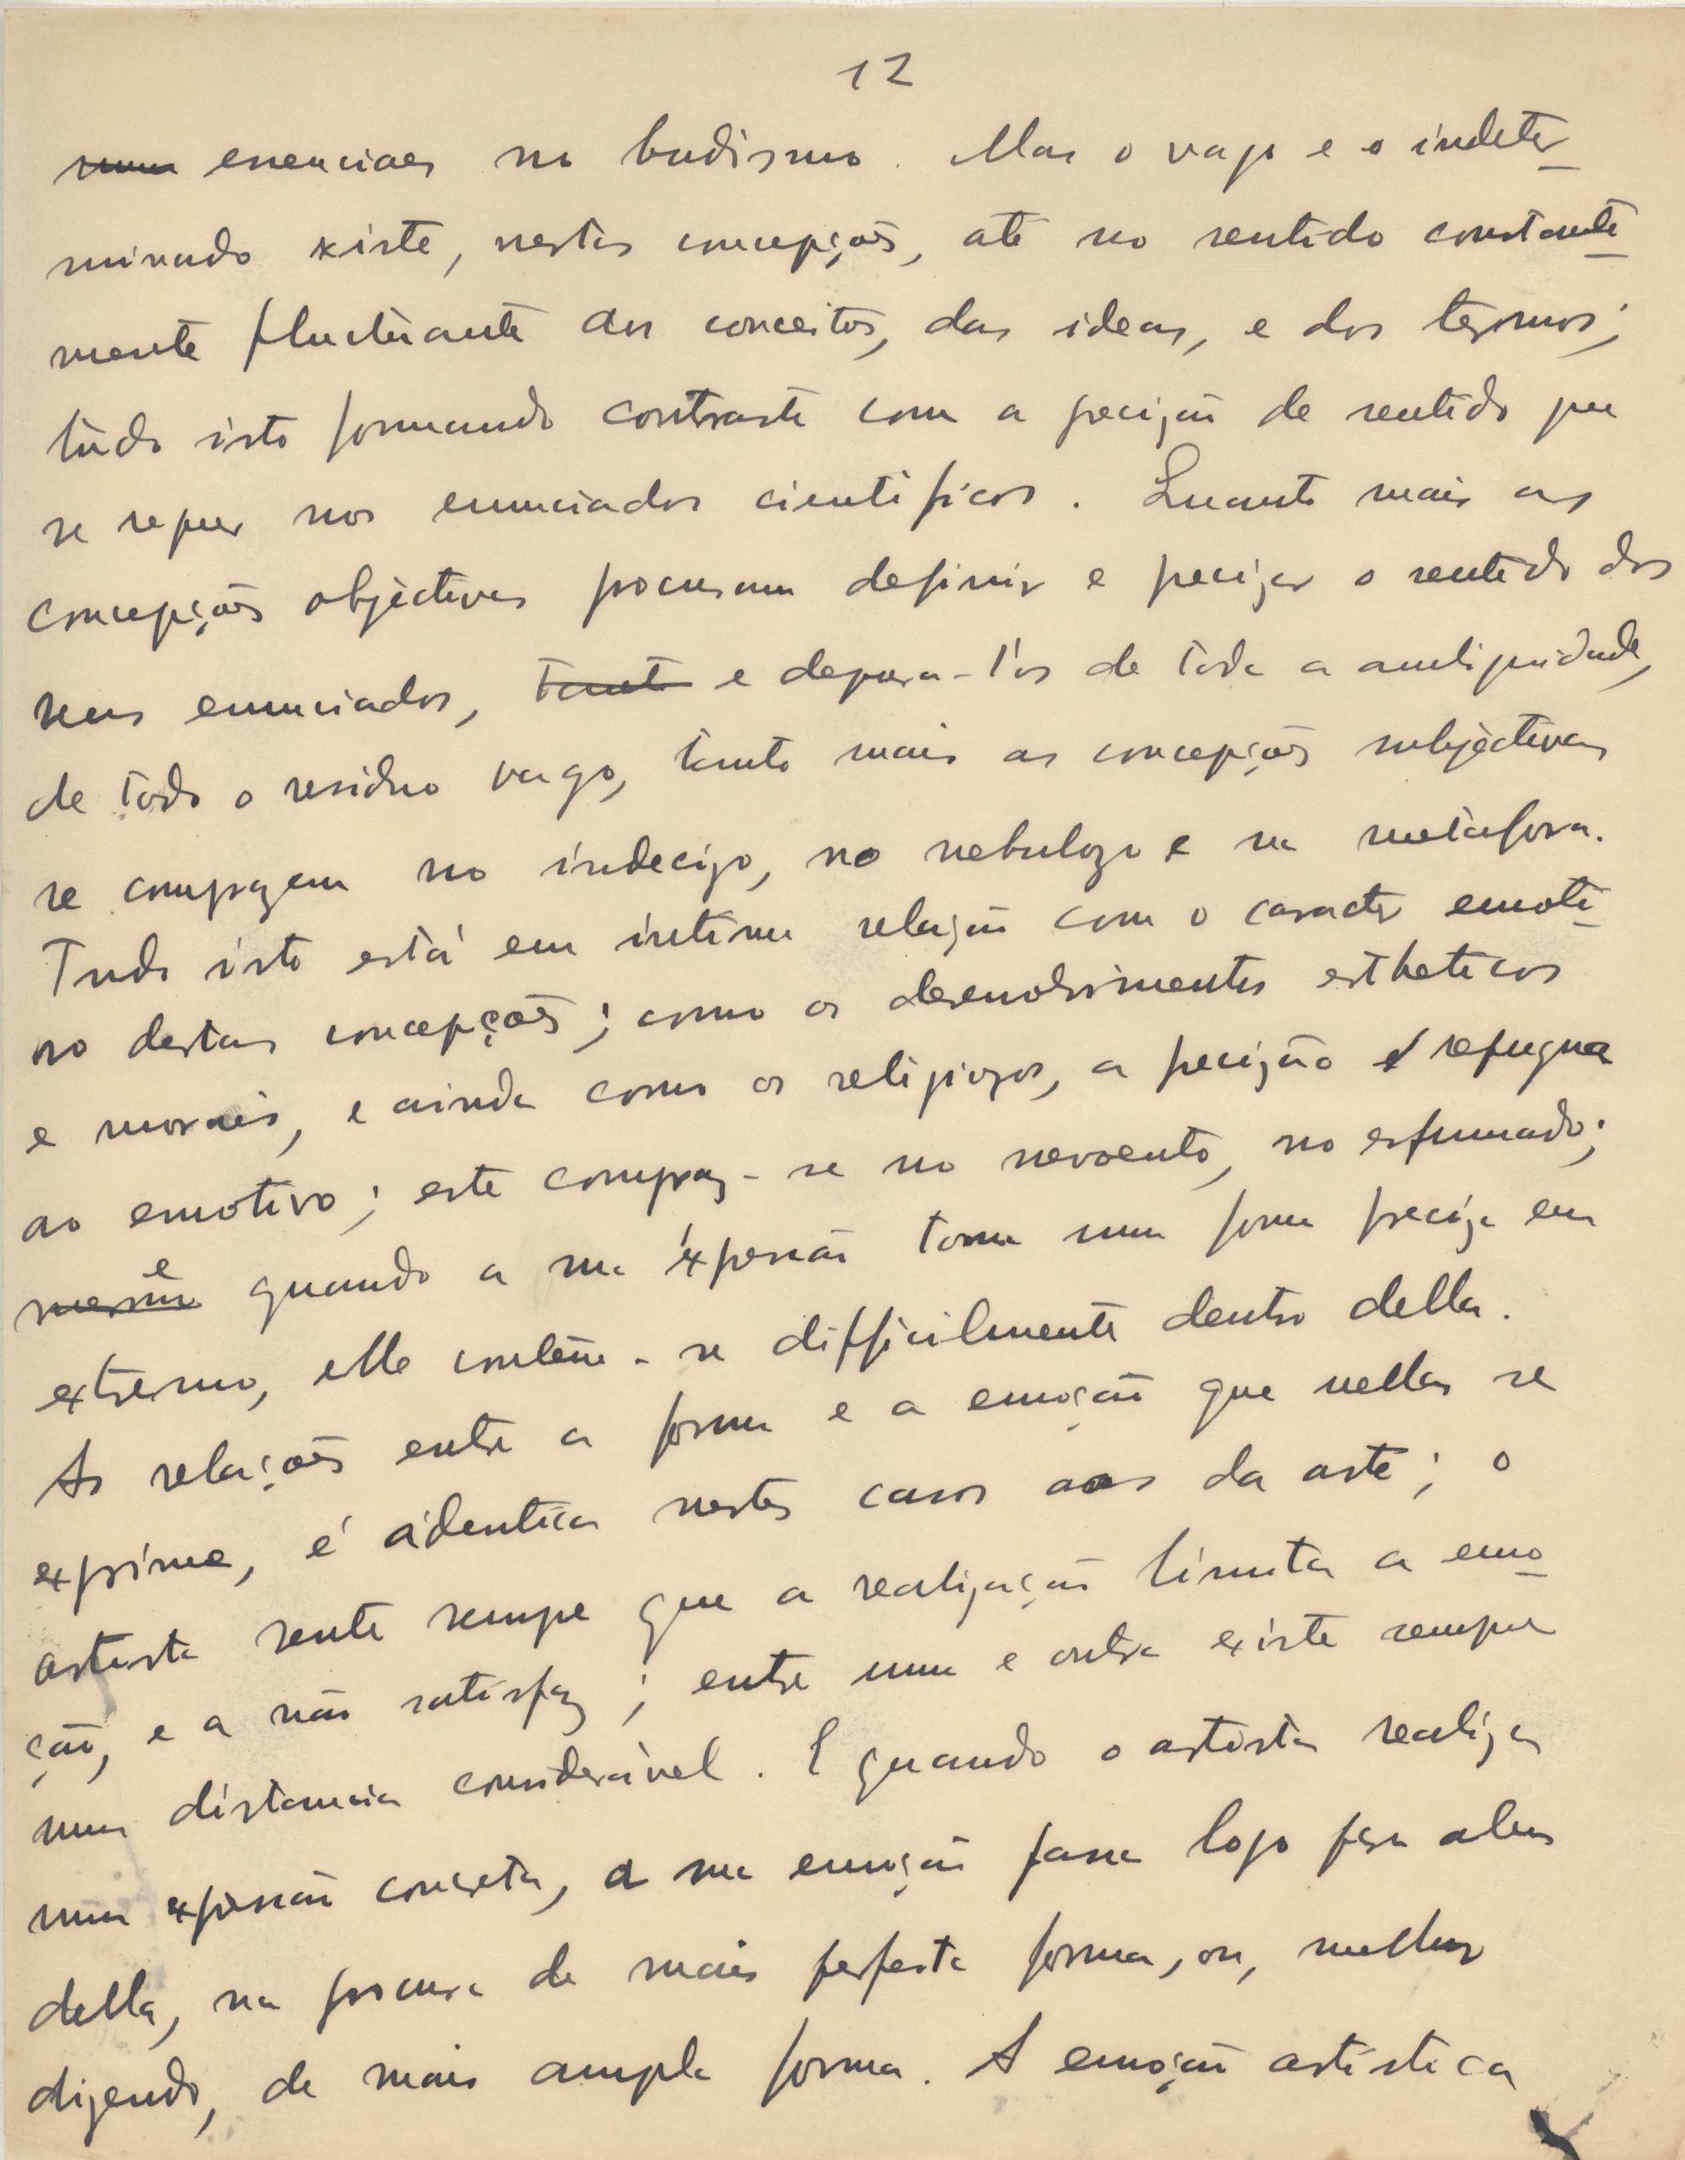 12
essenciaes no budismo. Mas o vago e o indeter-
minado xiste, nestas concepções, até no sentido constante-
mente fluctuante dos conceitos, das ideas, e dos termos;
tudo isto formando contraste com a precizão de sentido que
se requer nos enunciados cientificos. Quanto mais as
concepções objectivas procuram definir e precizar o sentido dos
seus enunciados, tanto e depura-l'os de toda a ambiguidade,
de todo o residuo vago, tanto mais as concepções subjectivas
se comprazem no indecizo, no nebulozo e na metafora.
Tudo isto está em intima relação com o caracter emoti-
vo destas concepções; como os desenvolvimentos estheticos
e moraes, e ainda como os religiozos, a precizão repugna
ao emotivo; este compraz-se no nevoento, no esfumado;
e quando a sua expressão toma uma forma preciza em
extremo, elle contém-se difficilmente dentro della.
As relações entre a forma e a emoção que nellas se
exprime, é identica nestes casos aos da arte; o
artista sente sempre que a realização limita a emo-
ção, e a não satisfaz; entre uma e outra existe sempre
uma distancia consideravel. E quando o artista realiza
uma expressão concreta, a sua emoção passa logo para alem
della, na procura de mais perfeita forma, ou, melhor
dizendo, de mais ampla forma. A emoção artistica